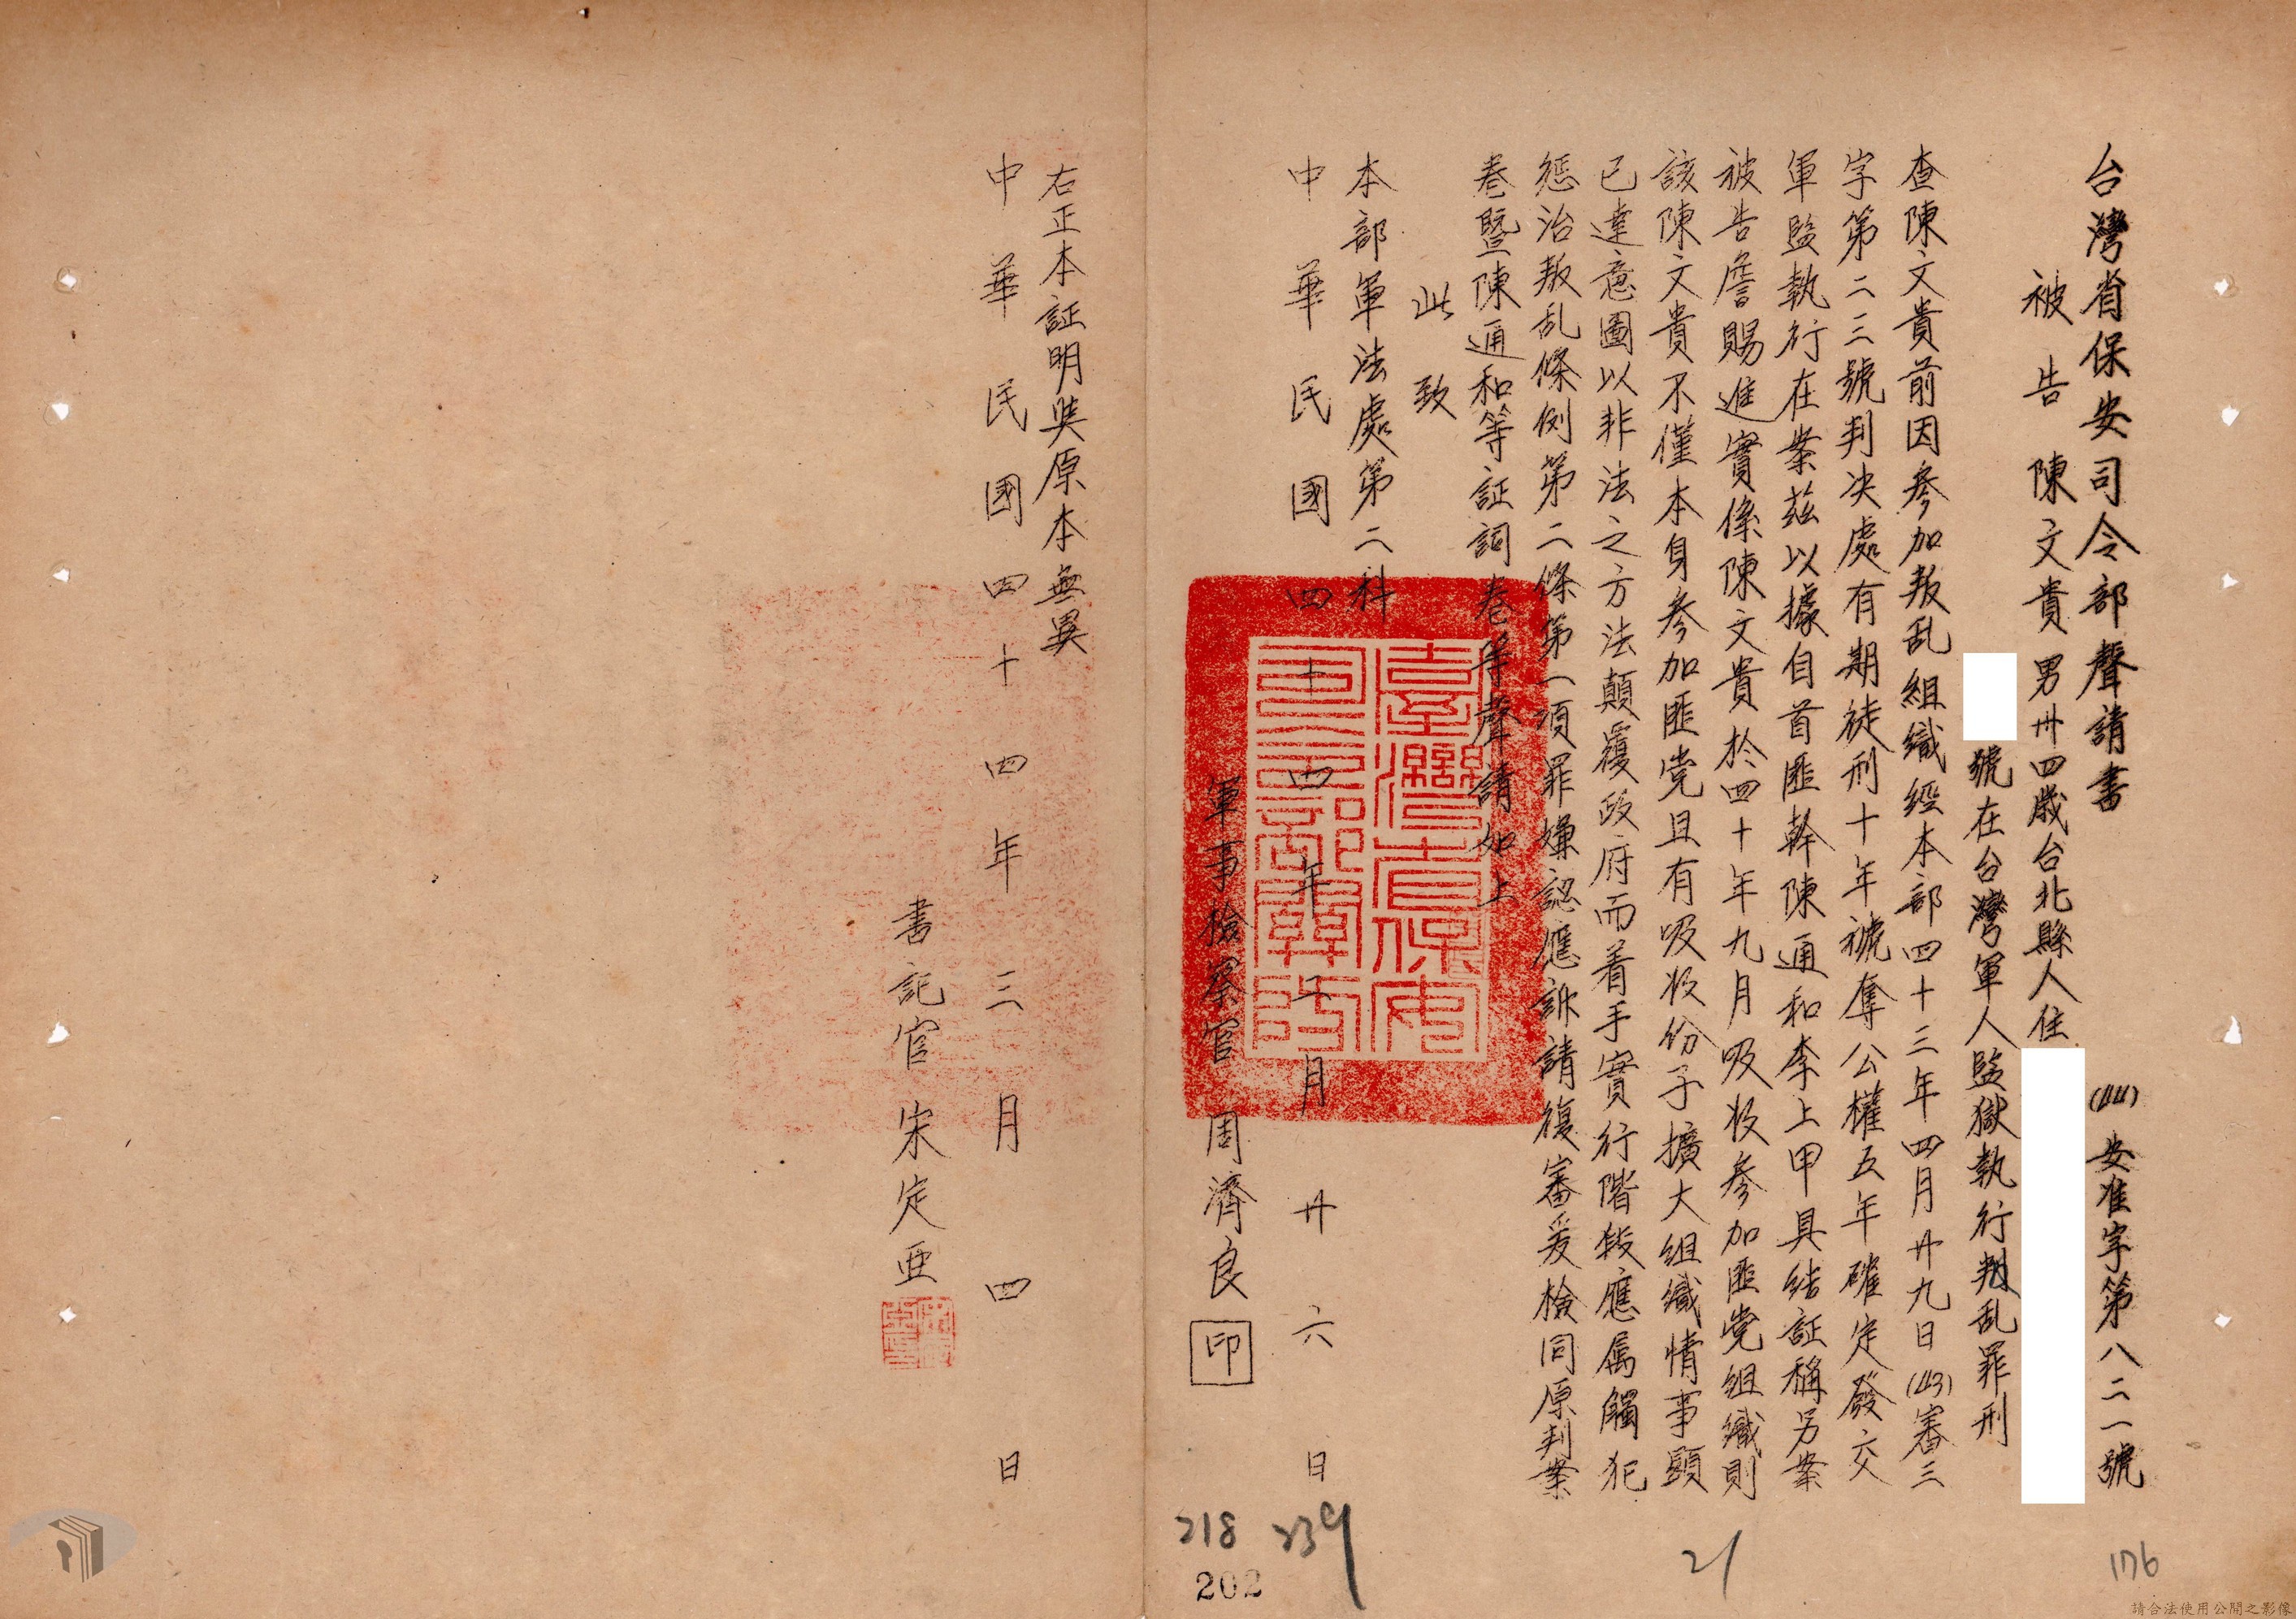 台灣省保安司令部聲請書
(44)安准字第八二一號
被告 陳文貴 男卅四歲台北縣人住
號在台灣軍人監獄執行叛乱罪刑
查陳文貴前因參加叛乱組織經本部四十三年四月廿九日(43)審三
字第二三號判决處有期徒刑十年褫奪公權五年確定發交
軍監執行在案茲以據自首匪幹陳通和李上甲具結証稱另案
被告詹賜進實係陳文貴於四十年九月吸收參加匪党組織則
該陳文貴不僅本身參加匪党且有吸收份子擴大組織情事顕
已達意圖以非法之方法顛覆政府而着手實行階段應属觸犯
惩治叛乱條例第二條第一項罪嫌認應訴請復審爰檢同原判案
卷暨陳通和等証詞卷等聲請如上
此致
本部軍法處第二科
中華民國四十四年二月廿六日
軍事檢察官 周濟良 印
右正本証明與原本無異
中華民國四十四年三月四日
書記官 宋定亜
218
239
202
21
176
請合法使用公開之影像